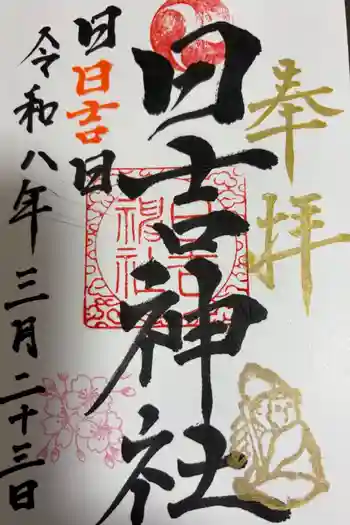 奉拝
日吉神社
日吉神社
日日吉日
令和八年三月二十三日